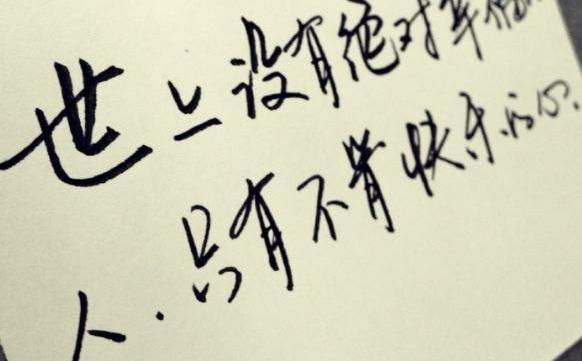 世上没有绝对幸福
人.只有不肯快乐的心.